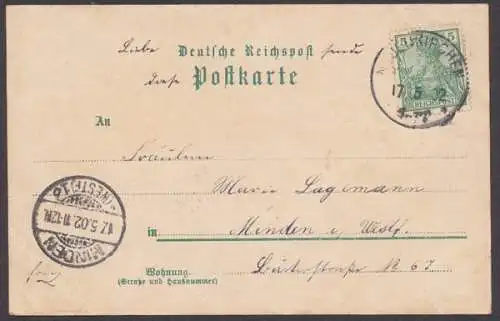 Liebe Deutsche Reichspost sende
diese Postkarte
An
Fräulein
Marie Lagemann
in Minden i. Westf.
Wohnung
(Straße und Hausnummer)
Bäckerstraße No 67
KIRCHEN
17 5 02
5
REICHSPOST
MINDEN
(WESTF.) 2
17.5.02.11-12N.